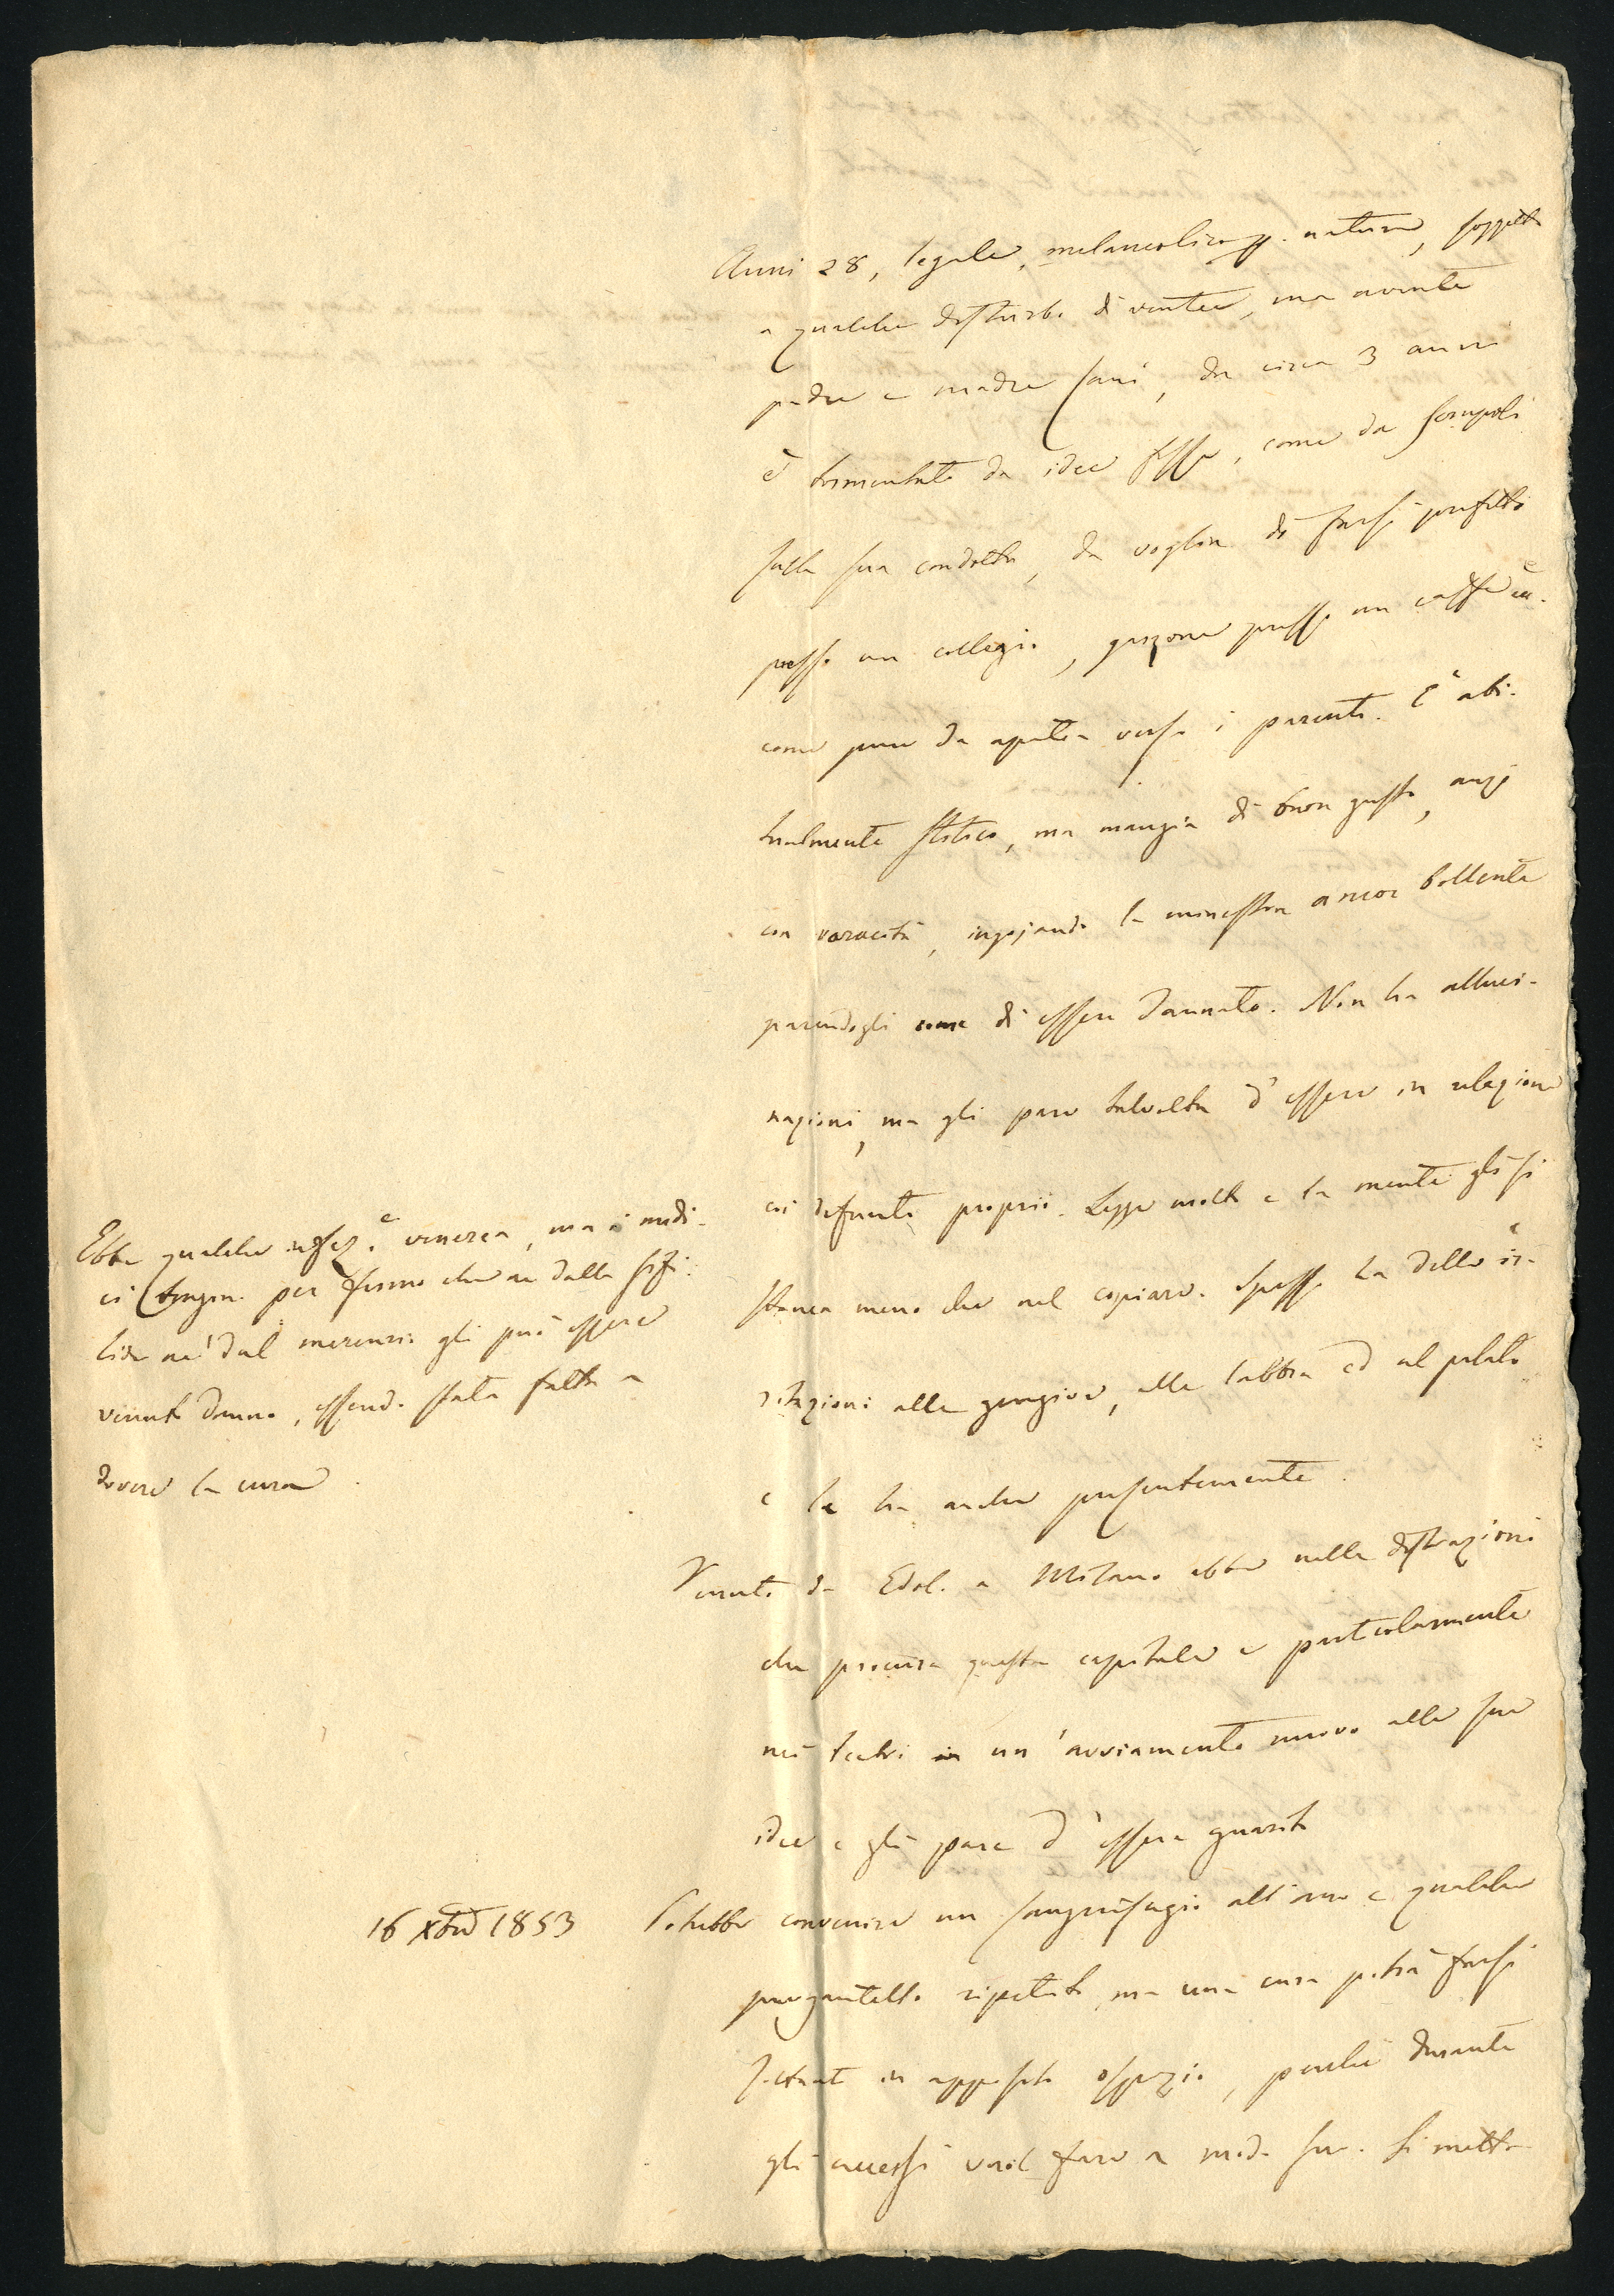 Anni 28, legale, melancolico p. natura, soggetto
a qualche disturbo di ventre, ma avente
padre e madre sani, da circa 3 anni
è tormentato da idee fisse, come da scrupoli
sulla sua condotta, da voglia di farsi prefetto
presso un collegio, garzone presso un caffè
come pure da apatia verso i parenti. È abi-
tualmente stitico, ma mangia di buon gusto, anzi
con voracità, ingojando la minestra ancor bollente
parendogli come di essere dannato. Non ha alluci-
nazioni, ma gli pare talvolta d'essere in relazione
coi defunti proprii. Legge molto e la mente gli si
stanca meno che nel copiare. Spesso ha delle ir-
ritazioni alle gengive, alle labbra ed al palato
e le ha anche presentemente.
Ebbe qualche affez.e venerea, ma i medi-
ci tengon per fermo che nè dalla sifi-
lide nè dal mercurio gli può essere
venuto danno, essendo stata fatta a
dovere la cura.
Venuto da Edolo a Milano ebbe nelle distrazioni
che procura questa capitale e particolarmente
nei teatri un'avviamento nuovo alle sue
idee e gli pare d'essere guarito
16 Xbre 1853
Potrebbe convenire un sanguisugio all'ano e qualche
purgantello ripetuto, ma una cura potrà farsi
soltanto in apposito ospizio, perchè durante
gli accessi vuol fare a modo suo. Si metta